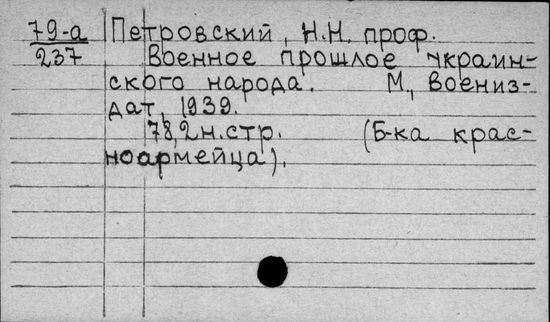 79-а Петровский, Н.Н. проф.
237 Военное прошлое украин-
ского народа. М., Воениз-
дат, 1939.
78,2н.стр. (Б-ка крас-
ноармейца).